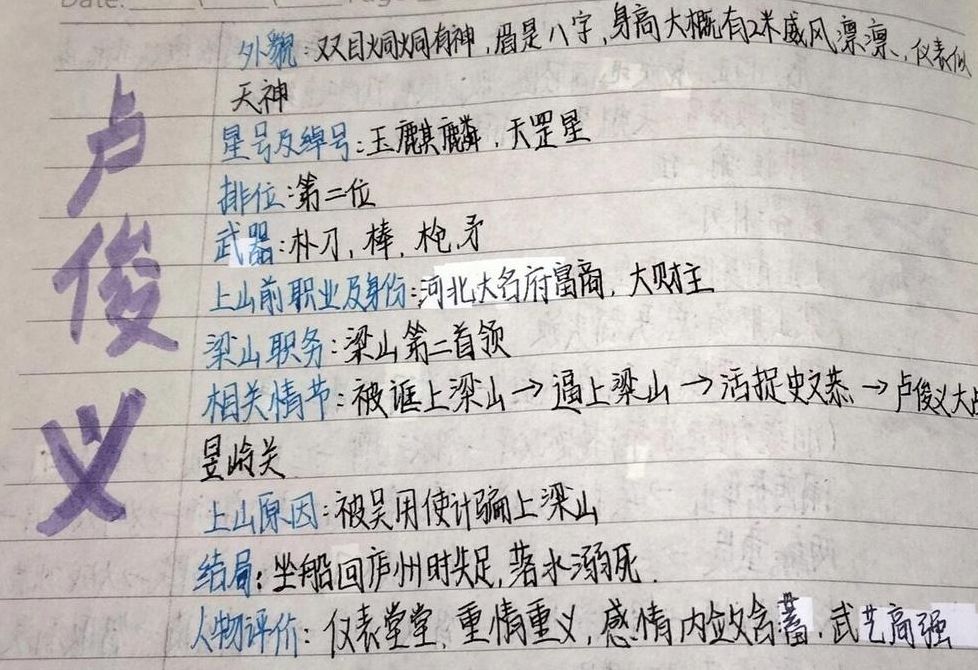 Date:
卢俊义
外貌:双目炯炯有神,眉是八字,身高大概有2米威风凛凛、仪表似
天神
星号及绰号:玉麒麟,天罡星
排位:第二位
武器:朴刀,棒,枪,矛
上山前职业及身份:河北大名府富商,大财主
梁山职务:梁山第二首领
相关情节:被诓上梁山→逼上梁山→活捉史文恭→卢俊义大
昱岭关
上山原因:被吴用使计骗上梁山
结局:坐船回庐州时失足,落水溺死.
人物评价:仪表堂堂,重情重义,感情内敛含蓄,武艺高强